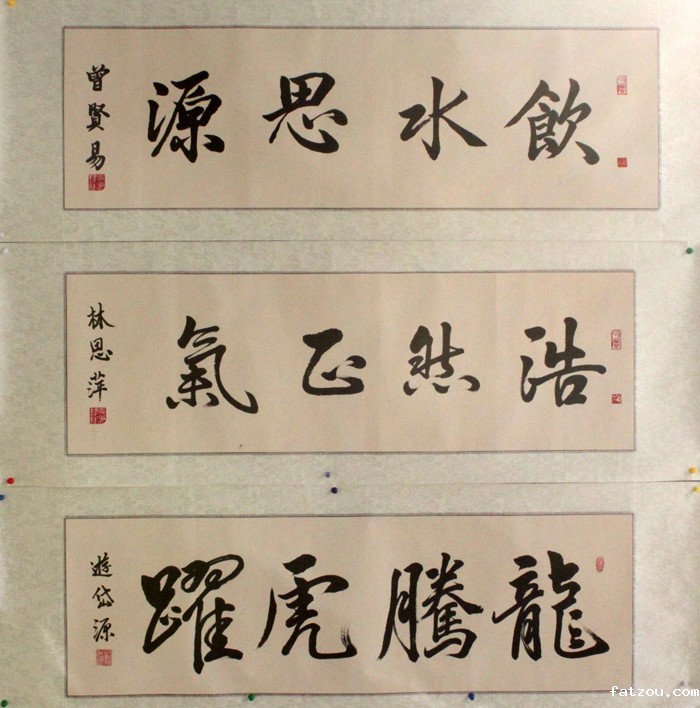 飲水思源
曾賢易
浩然正氣
林思萍
龍騰虎躍
遊岱源
fatzou.com